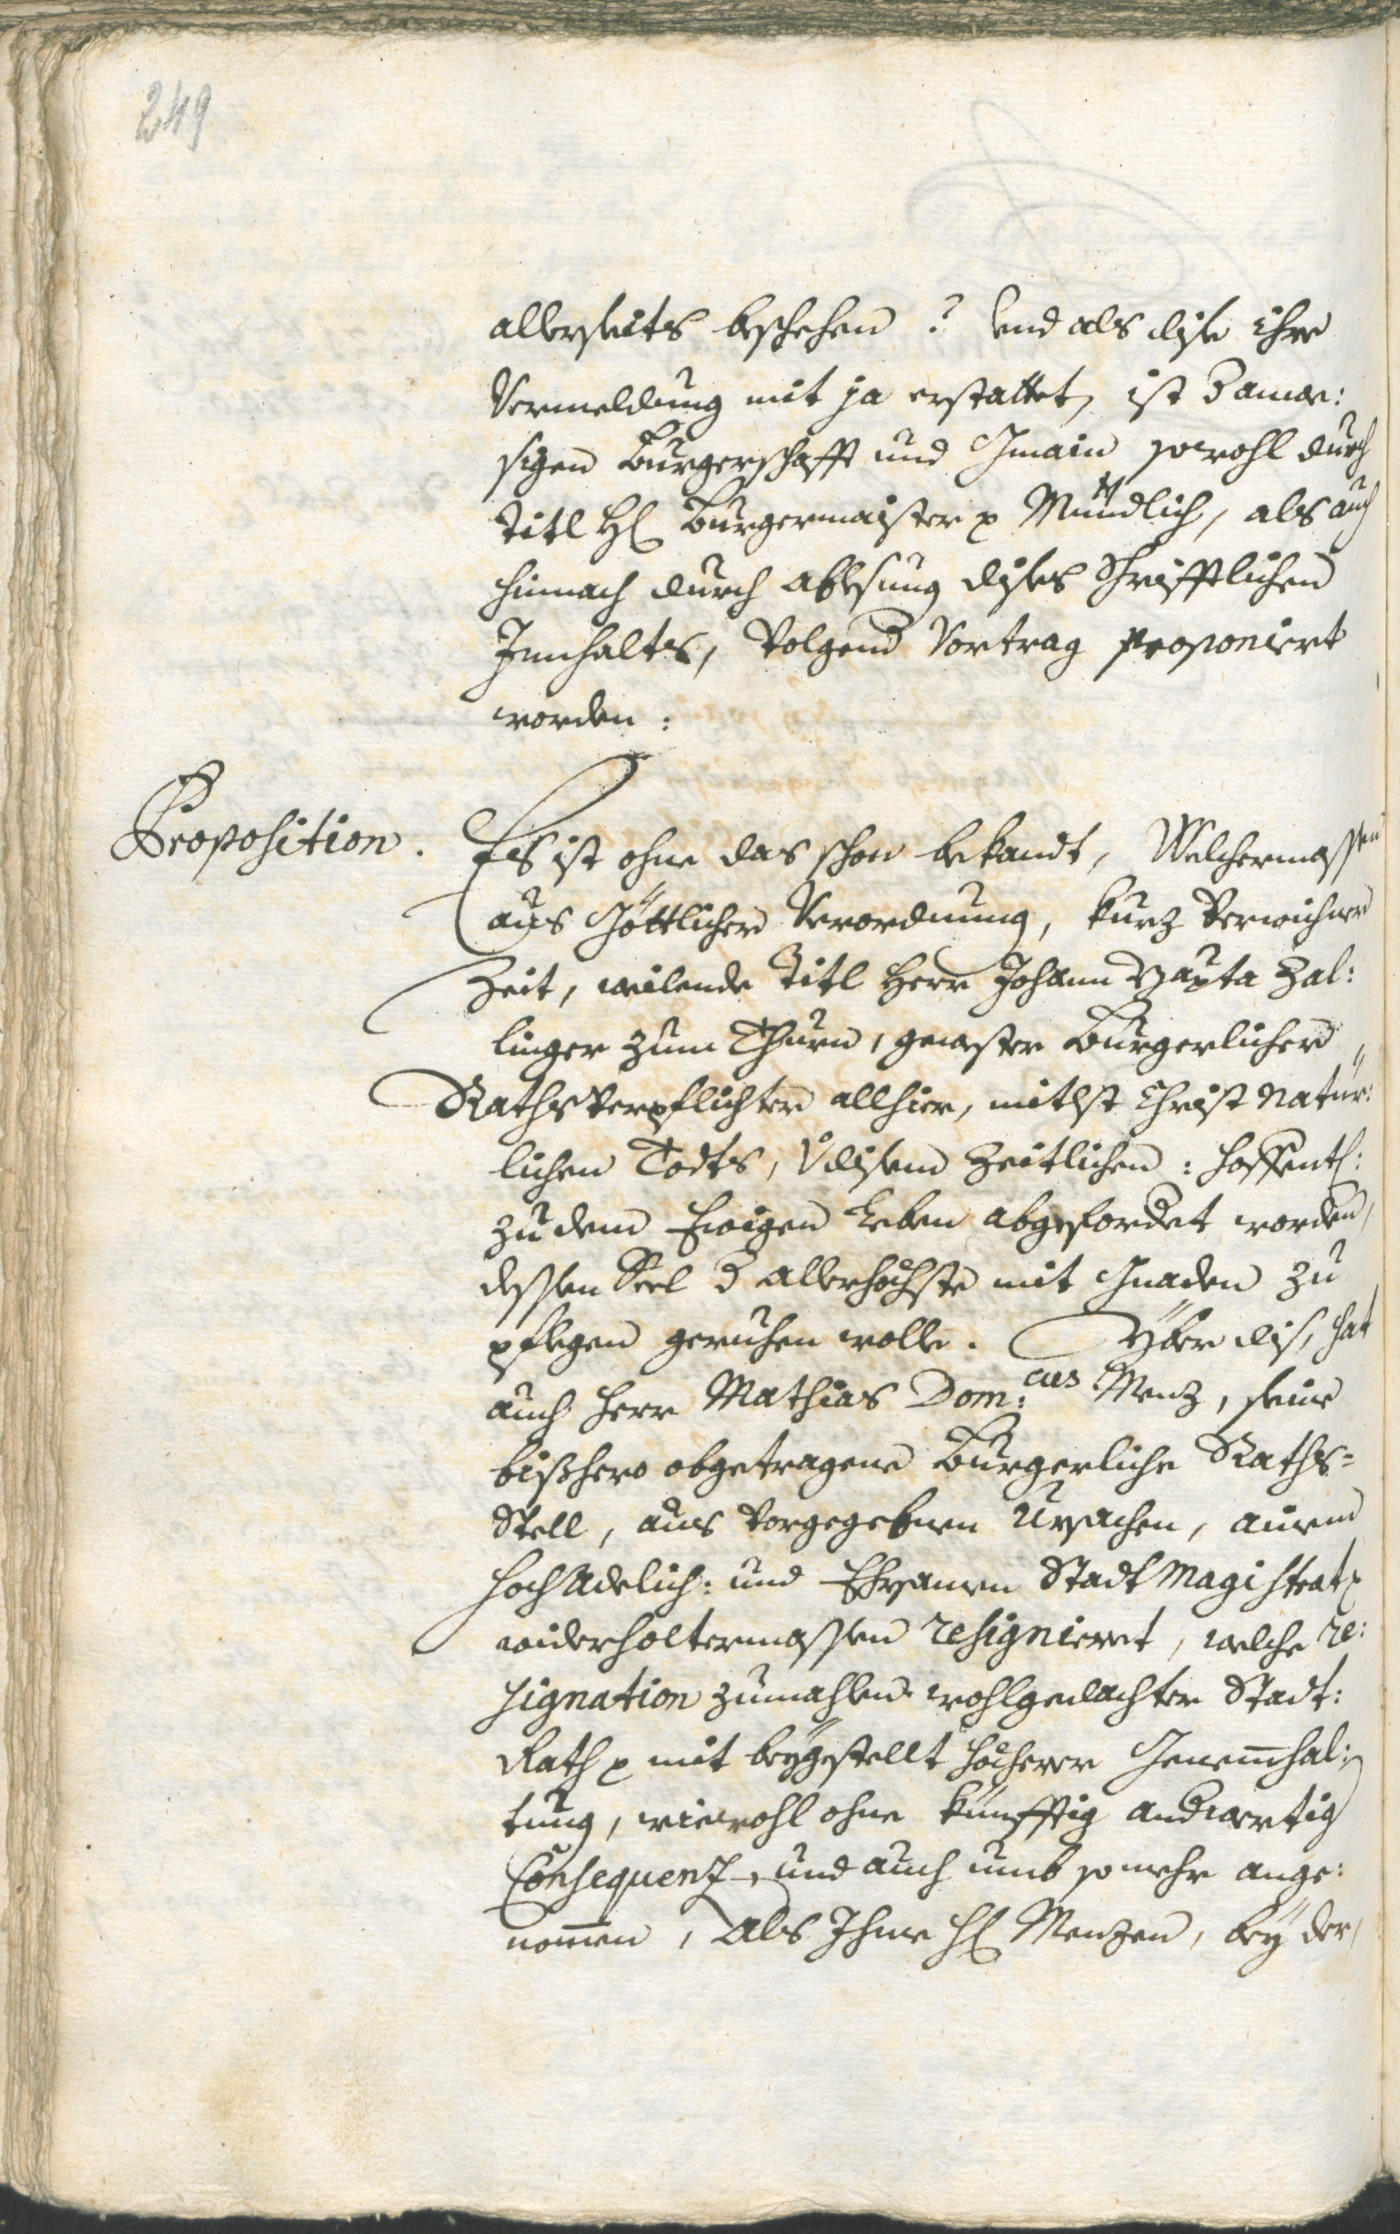 249
allerseits beschehen? Und als dise ihre
Vermeldung mit ja erstattet, ist d anwe:
sigen Burgerschafft und Gmain sowohl durch
Titl H: Burgermaister p Mündlich, als auch
hinnach durch ablesung dises Schrifftlichen
Innhalts, volgend Vortrag proponiert
worden:
Proposition.
Es ist ohne das schon bekandt, Welchermassen
aus Göttlicher Verordnung, kurz verwichner
Zeit, weilende Titl Herr Johann Bapta Zal:
linger zum Thurn, gewester Burgerlicher
Rathsverpflichter allhier, mitlst Christ Natür:
lichen Todts, v disem Zeitlichen: hoffentl:
zu dem Ewigen Leben abgefordet worden,
dessen Seel d allerhöchste mit Gnaden zu
pflegen geruhen wolle. Yber dis, hat
auch Herr Mathias Dom:cus Menz, seine
bißhero obgetragene Burgerliche Raths=
Stell, aus vorgegebnen Ursachen, ainem
HochAdelich: und Ehrsamen Stadt Magistrat p
widerholtermassen resigniert, welche re:
signation zumahlen wohlgedachter Stadt:
Rath p mit beygestellt höcherer Genemhal:
tung, wiewohl ohne künfftig andwertig
Consequenz, und auch umb so mehr ange:
nomen, Als Ihme H: Menzen, bey der